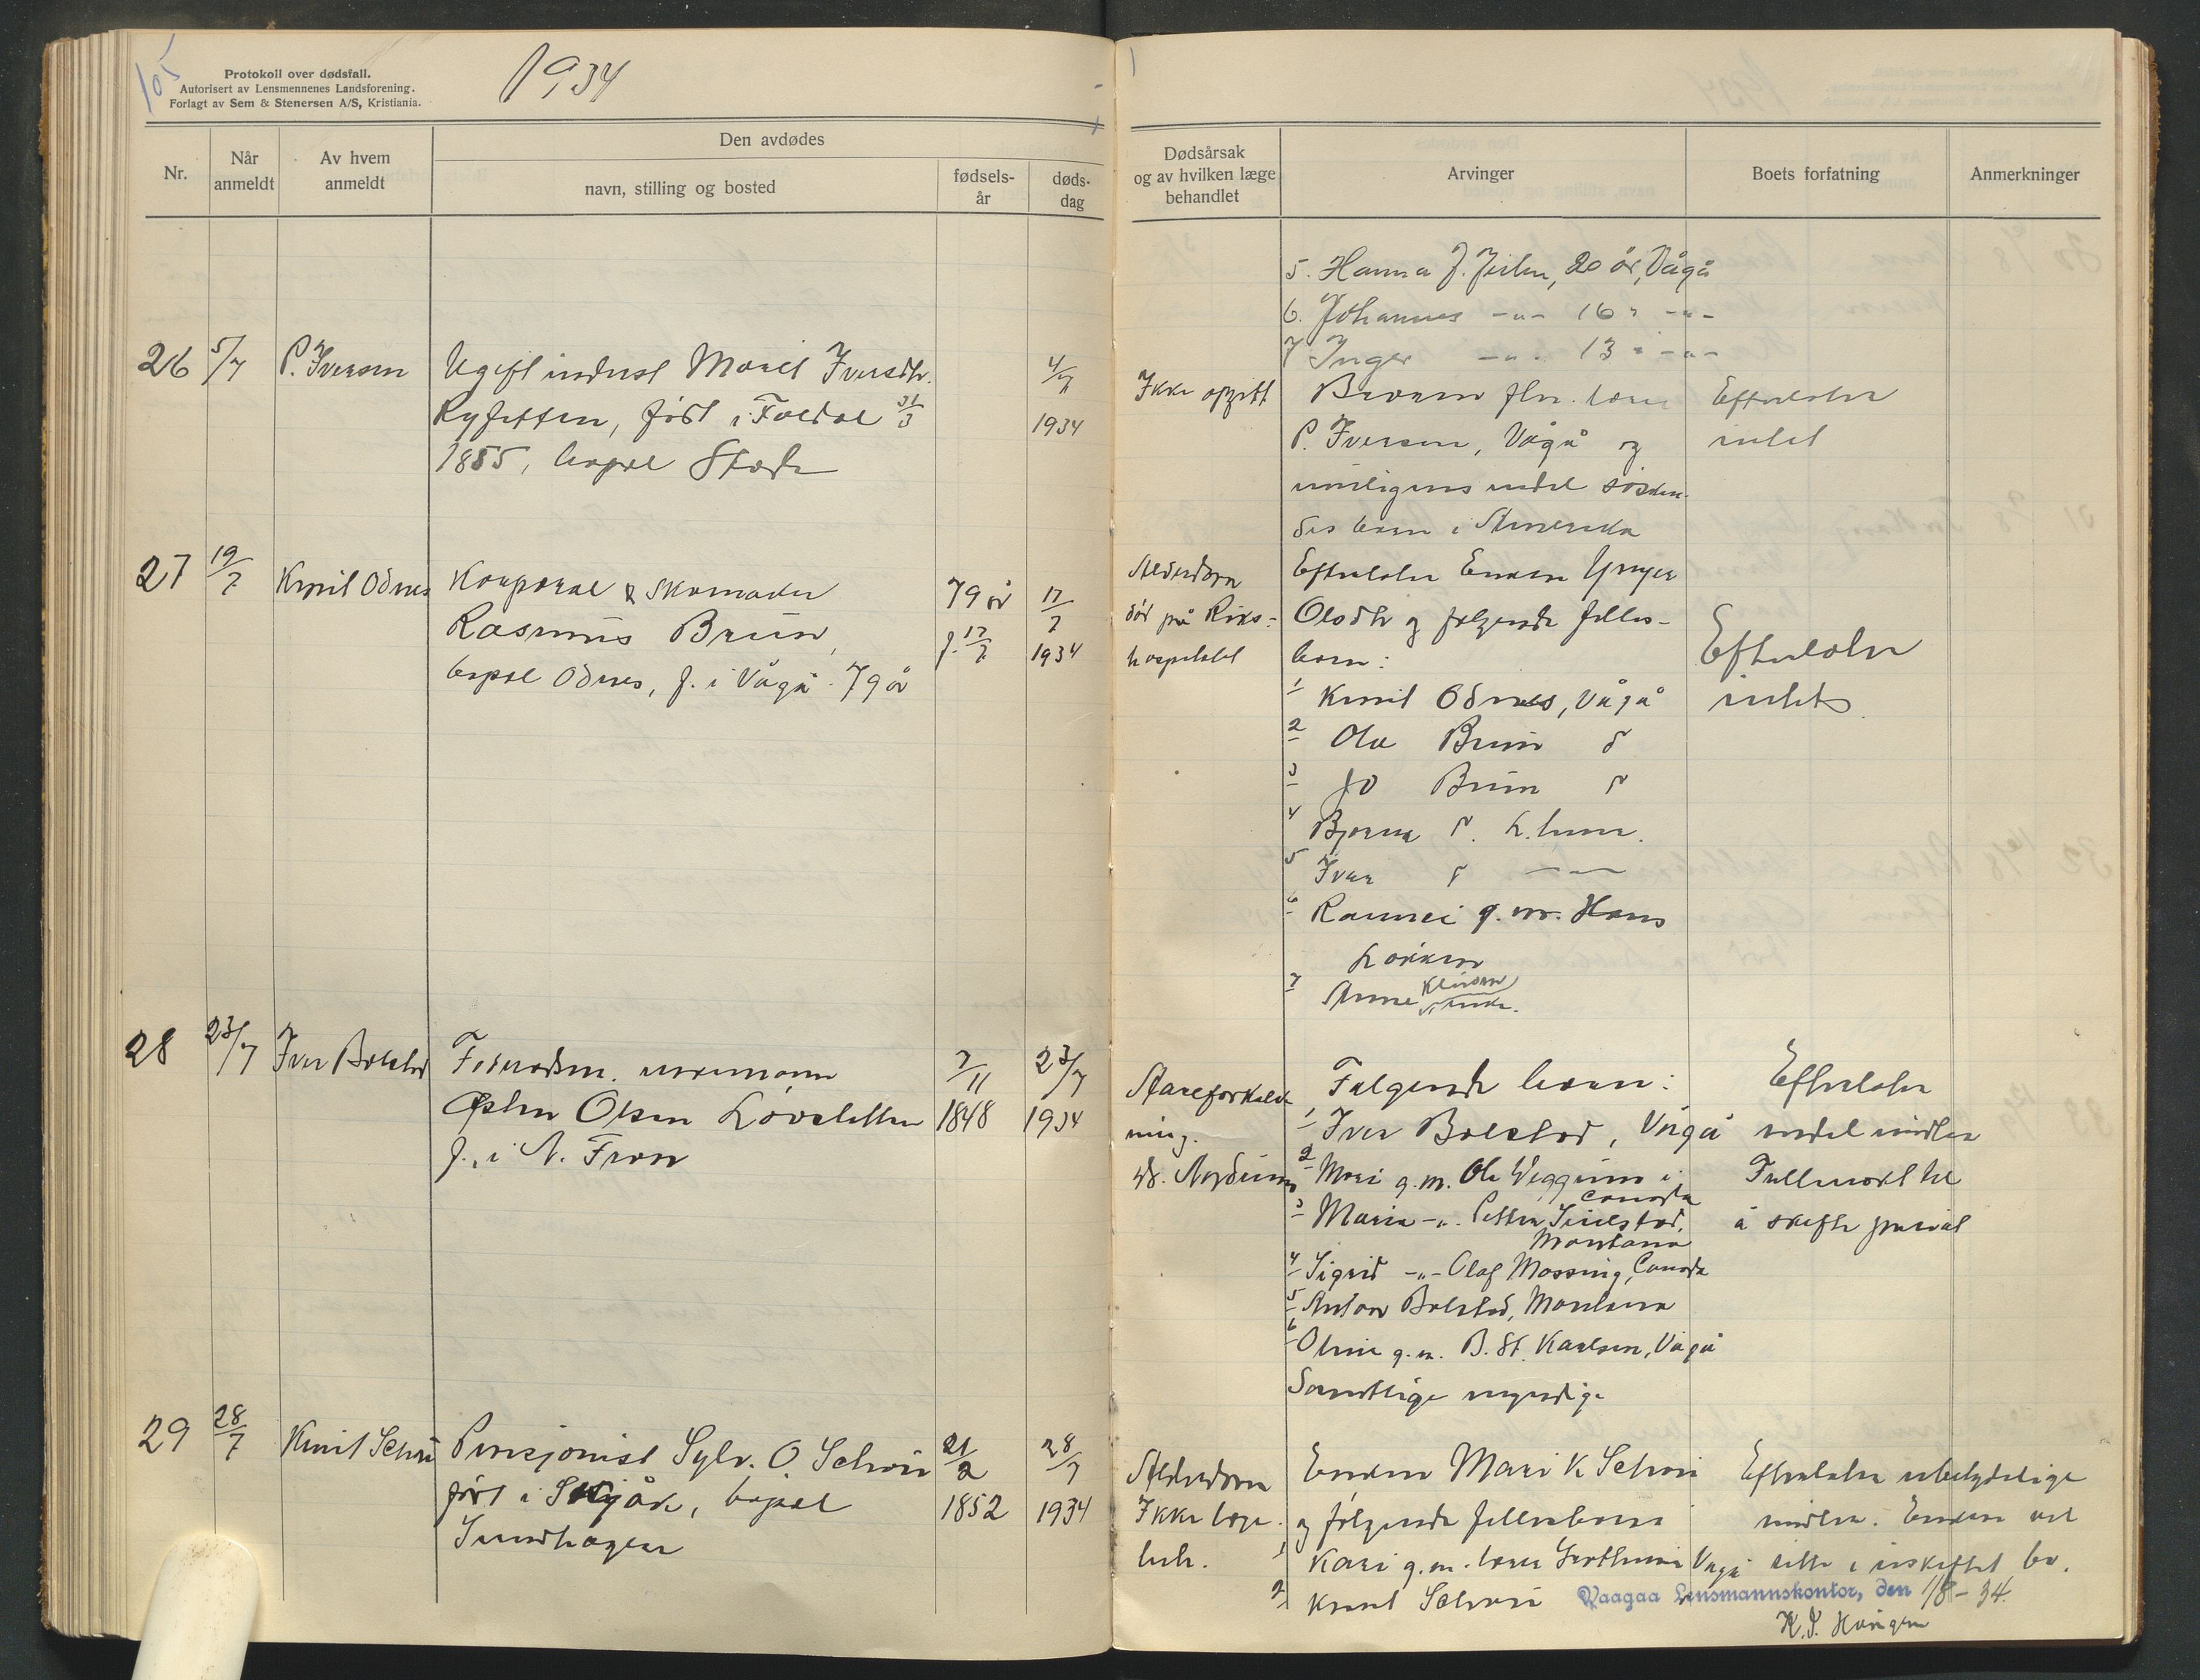 105
Protokoll over dødsfall.
Autorisert av Lensmennenes Landsforening.
Forlagt av Sem & Stenersen A/S, Kristiania.
1934
Nr.
Når anmeldt
Av hvem anmeldt
Den avdødes
navn, stilling og bosted
fødsels-år
døds-dag
Dødsårsak og av hvilken læge behandlet
Arvinger
Boets forfatning
Anmerkninger
5. Hanna J. 20 år, Vågå
6. Johannes -"- 16 " -"-
7 Inger -"- 13 " -"-
26 5/7 P. Iversen
Ugift inderst Marit Iversdtr.
født i Foldal 31/3
1855, bopæl
4/7
1934
Ikke opgitt
P. Iversen, Vågå og
muligens endel søsken-
des barn i Amerika
Efterlater
intet
27 19/7 Knut Odnes
Korporal & skomaker
Rasmus Bruun,
bopæl Odnes, f. i Vågå 79 år
79 år
f. 17/7
17/7
1934
Alderdom
død på Riks-
hospitalet
Efterlater Enken Yngjer
Olsdtr og følgende felles-
barn:
1 Knut Odnes, Vågå
2 Ola Bruun d
3 Jo Bruun d
4 Bjarne d.
5 Ivar d -"-
6 Rannei g.m. Hans
Løkken
7 Anne
Efterlater
intet
28 23/7 Iver Bolstad
Føderådsm. enkemann
Østen Olsen Løvsletten
f. i N. Fron
7/11
1848
23/7
1934
Aareforkalk-
ning.
dr. Nordrum
Følgende barn:
1 Iver Bolstad, Vågå
2 Mari g.m. Ole Veggum i
Canada
3 Maria -"- Petter
Montana
4 Sigrid -"- Olaf Mossing, Canada
5 Anton Bolstad, Montana
6 Oline g.m. B. St. Karlsen, Vågå
Samtlige myndige
Efterlater
endel midler
Fullmakt til
å skifte privat
29 28/7 Knut Schou
Pensjonist Sylv. O. Schou
født i Skjåk, bopæl
Sundhagen
21/2
1852
28/7
1934
Alderdom
Ikke læge-
beh.
Enken Mari K Schou
og følgende fellesbarn
1 Kari g.m. Vågå
2 Knut Schou
Efterlater ubetydelige
midler. Enken vil
sitte i uskiftet bo.
Vaagaa Lensmannskontor, den 1/8-34.